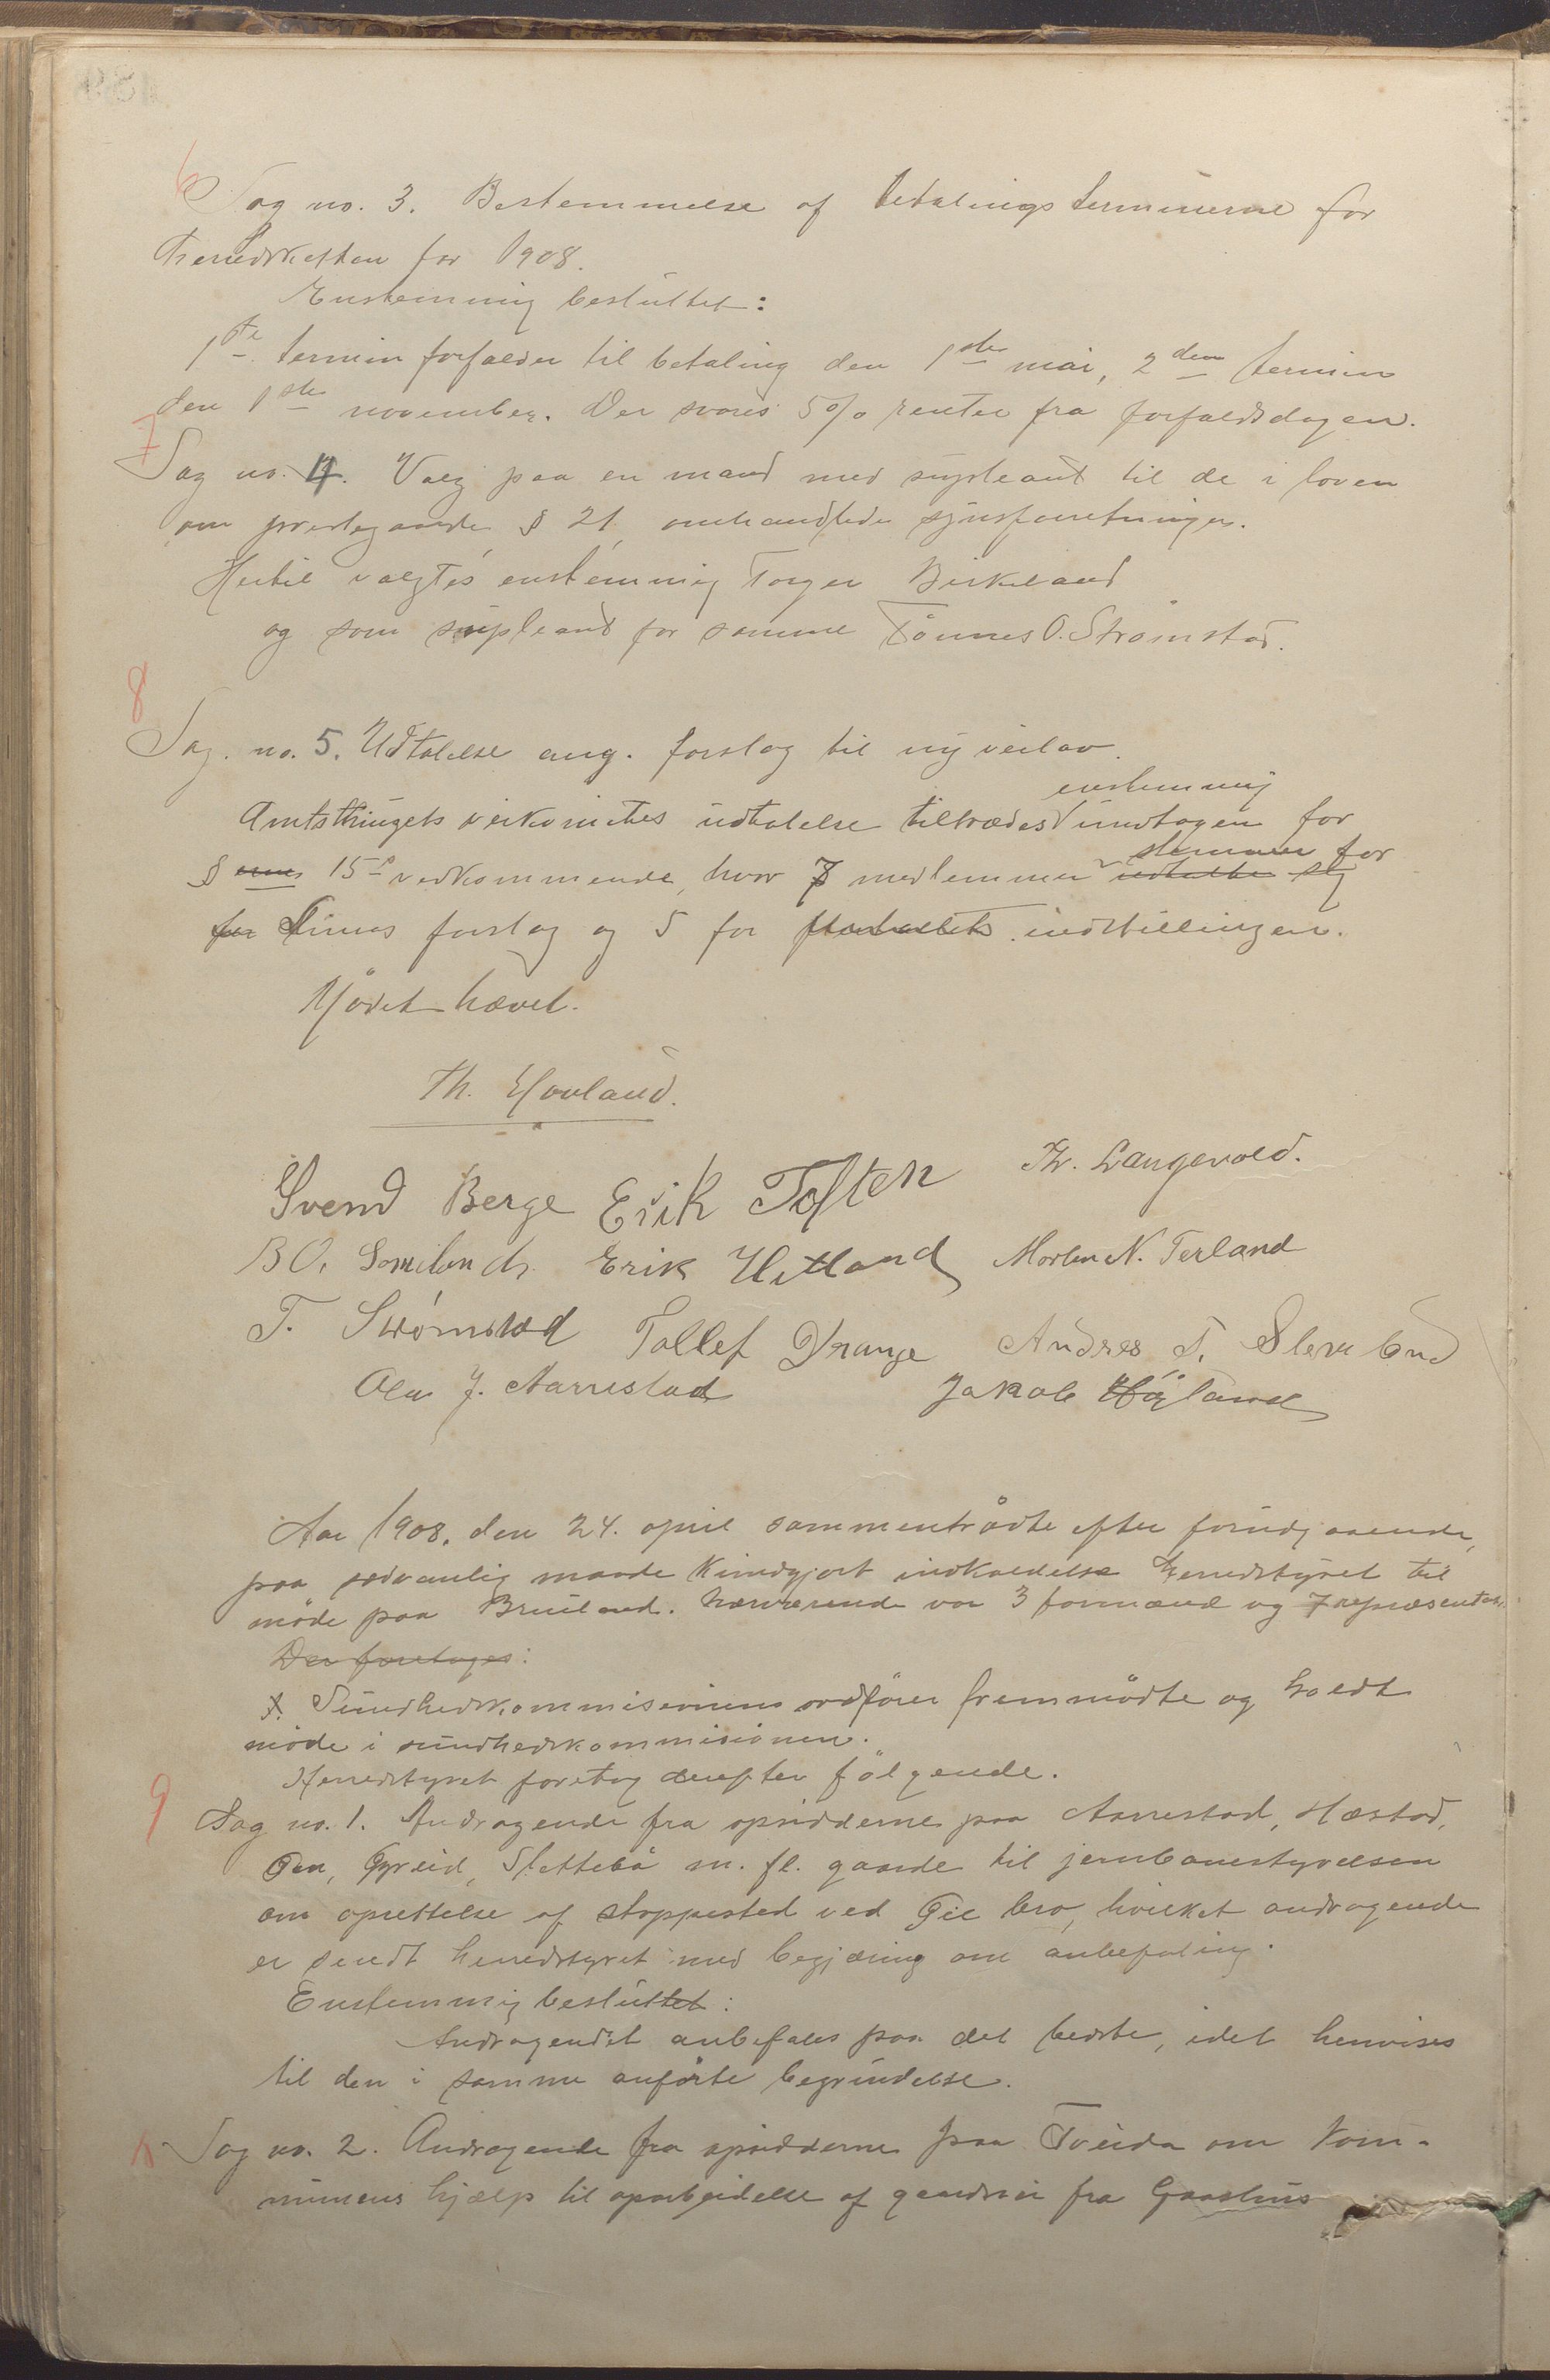 6
Sag no. 3. Bestemmelse af betalingsterminerne for
herredskatten for 1908.
Enstemmig besluttet:
1ste termin forfalder til betaling den 1ste mai, 2den termin
den 1ste november. Der svares 5% renter fra forfaldsdagen.
7
Sag no. 4. Valg paa en mand med supleant til de i loven
om prestegaarde § 21 omhandlede synsforretninger.
Hertil valgtes enstemmig Torger Birkeland
og som supleant for samme Tönnes O. Strömstad.
8
Sag. no. 5. Udtalelse ang. forslag til ny veilov.
enstemmig
Amtsthingets veikomites udtalelse tiltrædes undtagen for
stemmer for
§ 15s vedkommende, hvor 7 medlemmer udtalte sig
for forslag og 5 for indstillingen.
Mödet hævet.
Th. Hovland.
Svend Berge Erik Toften Th. Langevold.
B O. Erik Hetland Morten N. Terland
T. Strömstad Tollef Vrange Andres T. Slettebö
Ole J. Aarrestad Jakob Höyland
Aar 1908, den 24. april sammentraadte efter forudgaaende,
paa sedvanlig maade kundgjort indkaldelse herredstyret til
möde paa Brueland. Nærværende var 3 formænd og 7 repræsentanter
Der foretoges:
1. Sundhedskommisionens ordförer fremmödte og holdt
möde i sundhedskommisionen.
Herredstyret foretog derefter fölgende.
9
Sag no. 1. Andragende fra opsidderne paa Aarrestad, Hæstad,
Gya, Gyreid, Slettebö m. fl. gaarde til jernbanestyrelsen
om oprettelse af stoppested ved bro, hvilket andragende
er sendt herredstyret med begjæring om anbefaling.
Enstemmig besluttet:
Andragendet anbefales paa det bedste, idet henvises
til den i samme anförte begrundelse.
10
Sag no. 2. Andragende fra opsidderne paa Tveida om kom-
munens hjælp til oparbeidelse af gaardsvei fra Gaashus